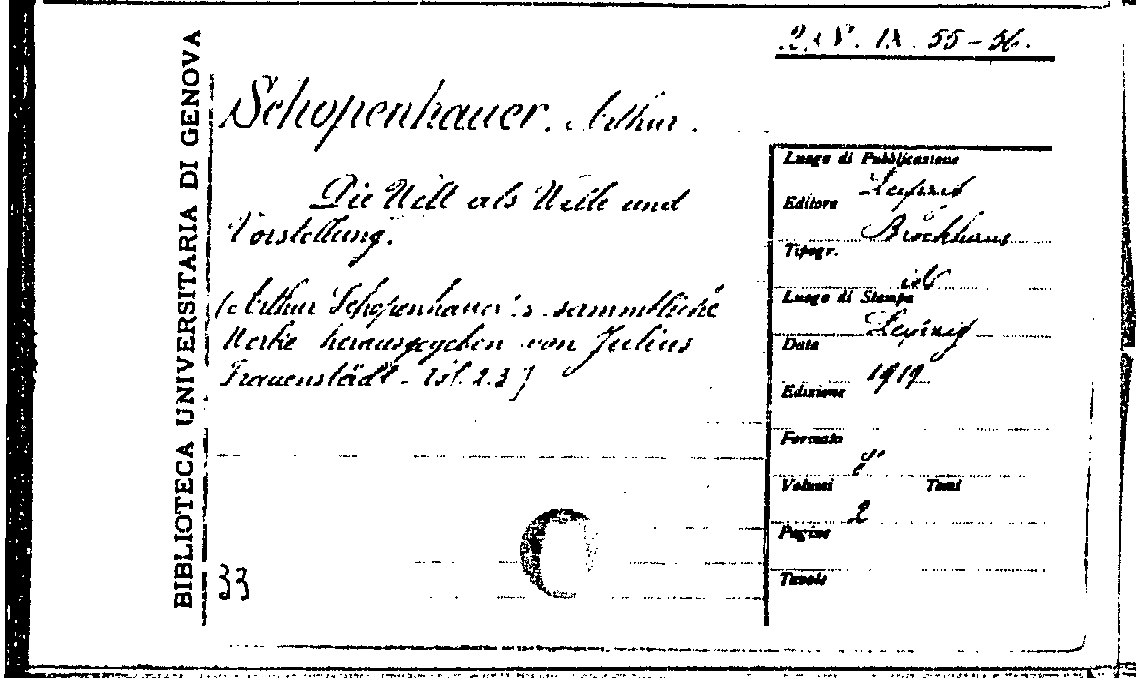 BIBLIOTECA UNIVERSITARIA DI GENOVA
IX. 55-56.
Schopenhauer. Arthur.
Die Welt als Wille und
Vorstellung.
(Arthur Schopenhauer's sämmtliche
Werke herausgegeben von Julius
Frauenstädt - 2.3)
33
Luogo di Pubblicazione
Leipzig
Editore
Brockhaus
Tipogr.
id
Luogo di Stampa
Leipzig
Data
1919
Edizione
Formato
8°
Volumi Tomi
2
Pagine
Tavole